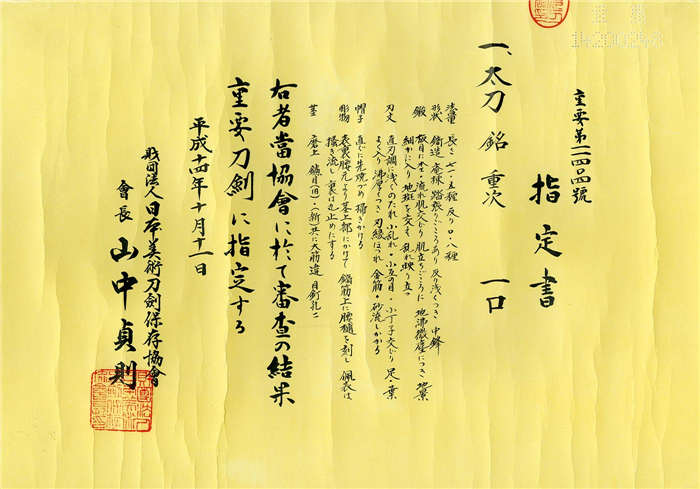 重要第一一四四號
指定書
一、太刀 銘 重次 一口
法量 長さ 七一・五糎 反り 〇・八糎
形状 鎬造 庵棟 踏張りごころあり 反り浅くつき 中鋒
鍛 板目に杢・流れ肌交じり 肌立ちごころに 地沸微塵につき 地景
細かに入り 地斑を交え 乱れ映り立つ
刃文 直刃調 浅くのたれ 小乱れ・小互の目・小丁子交じり 足・葉
よく入り 沸厚くつき 刃縁ほつれ 金筋・砂流しかかる
帽子 直ぐに先焼づめ 掃きかける
彫物 表裏腰元より茎上部にかけて 鎬筋上に腰樋を刻し 佩表は
掻き流し 裏は丸止めにする
茎 磨上 鑢目(旧)・(新)共に大筋違 目釘孔二
右者當協會に於て審査の結果
重要刀劍に指定する
平成十四年十月十一日
財団法人日本美術刀劍保存協會
會長 山中貞則